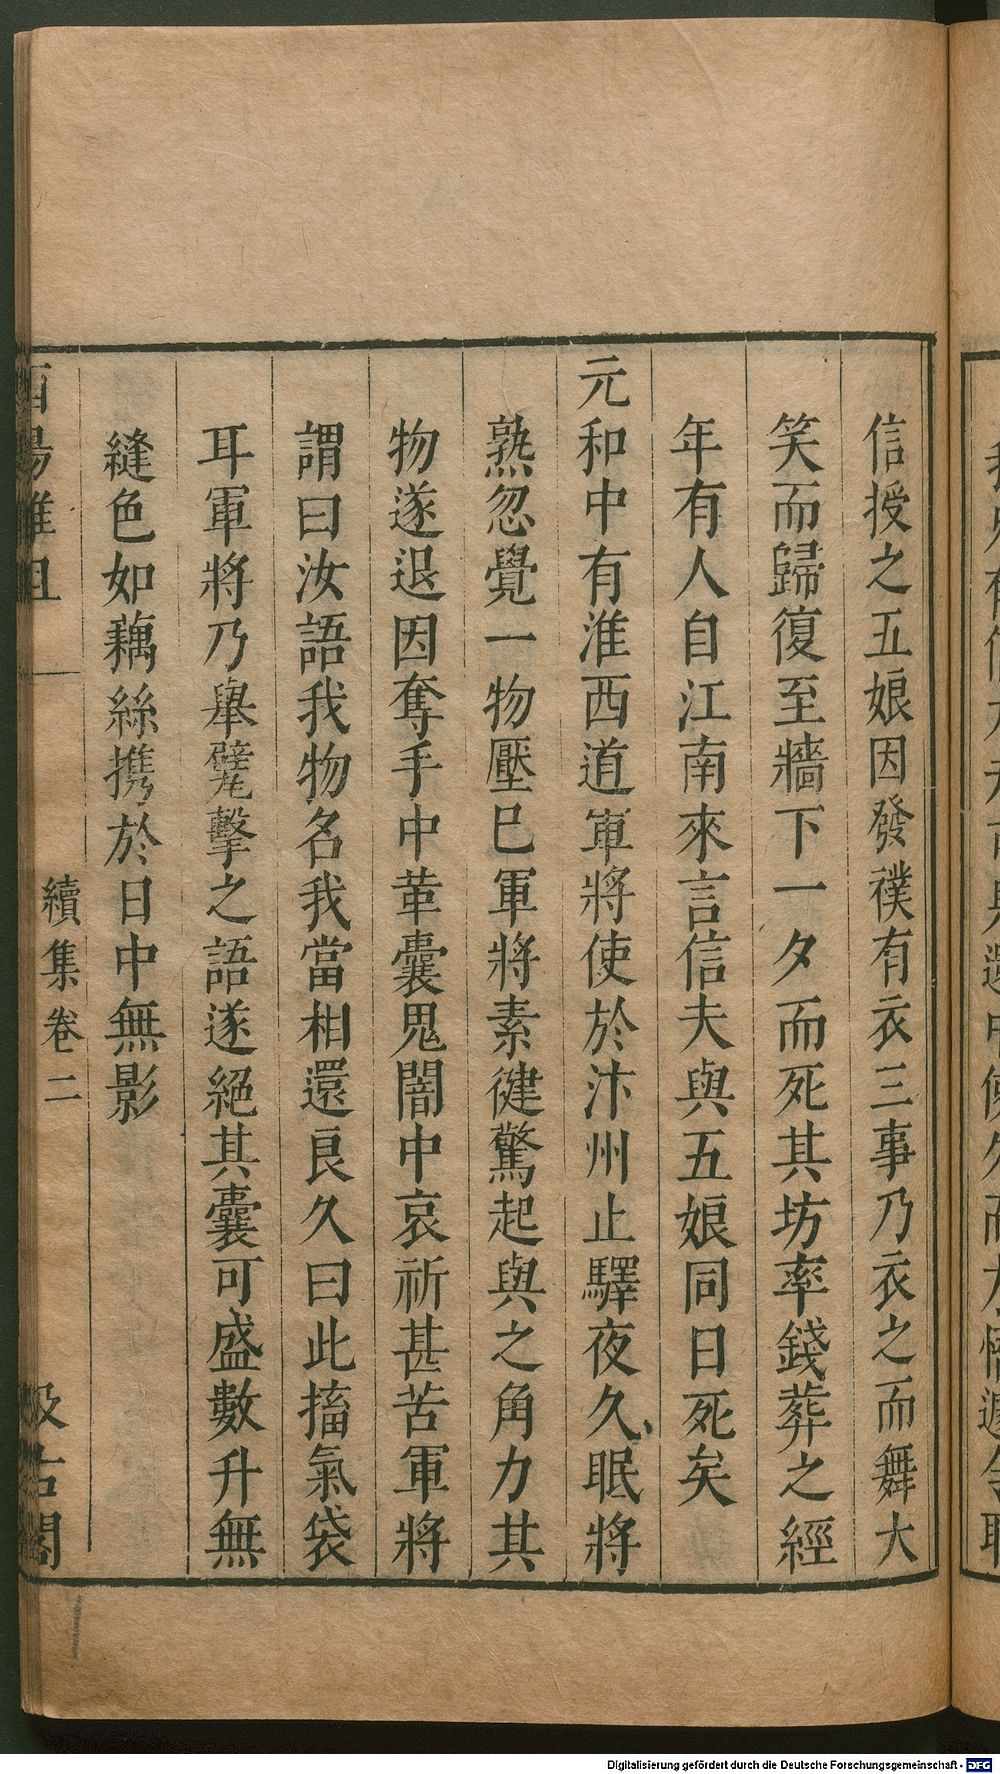 信授之五娘因發襆有衣三事乃衣之而舞大
笑而歸復至牆下一夕而死其坊率錢葬之經
年有人自江南來言信夫與五娘同日死矣
元和中有淮西道軍將使於汴州止驛夜久眠將
熟忽覺一物壓巳軍將素健驚起與之角力其
物遂退因奪手中革囊鬼闇中哀祈甚苦軍將
謂曰汝語我物名我當相還良久曰此搐氣袋
耳軍將乃舉甓擊之語遂絕其囊可盛數升無
縫色如藕絲携於日中無影
酉陽雜俎
續集卷二
汲古閣
Digitalisierung gefördert durch die Deutsche Forschungsgemeinschaft - DFG